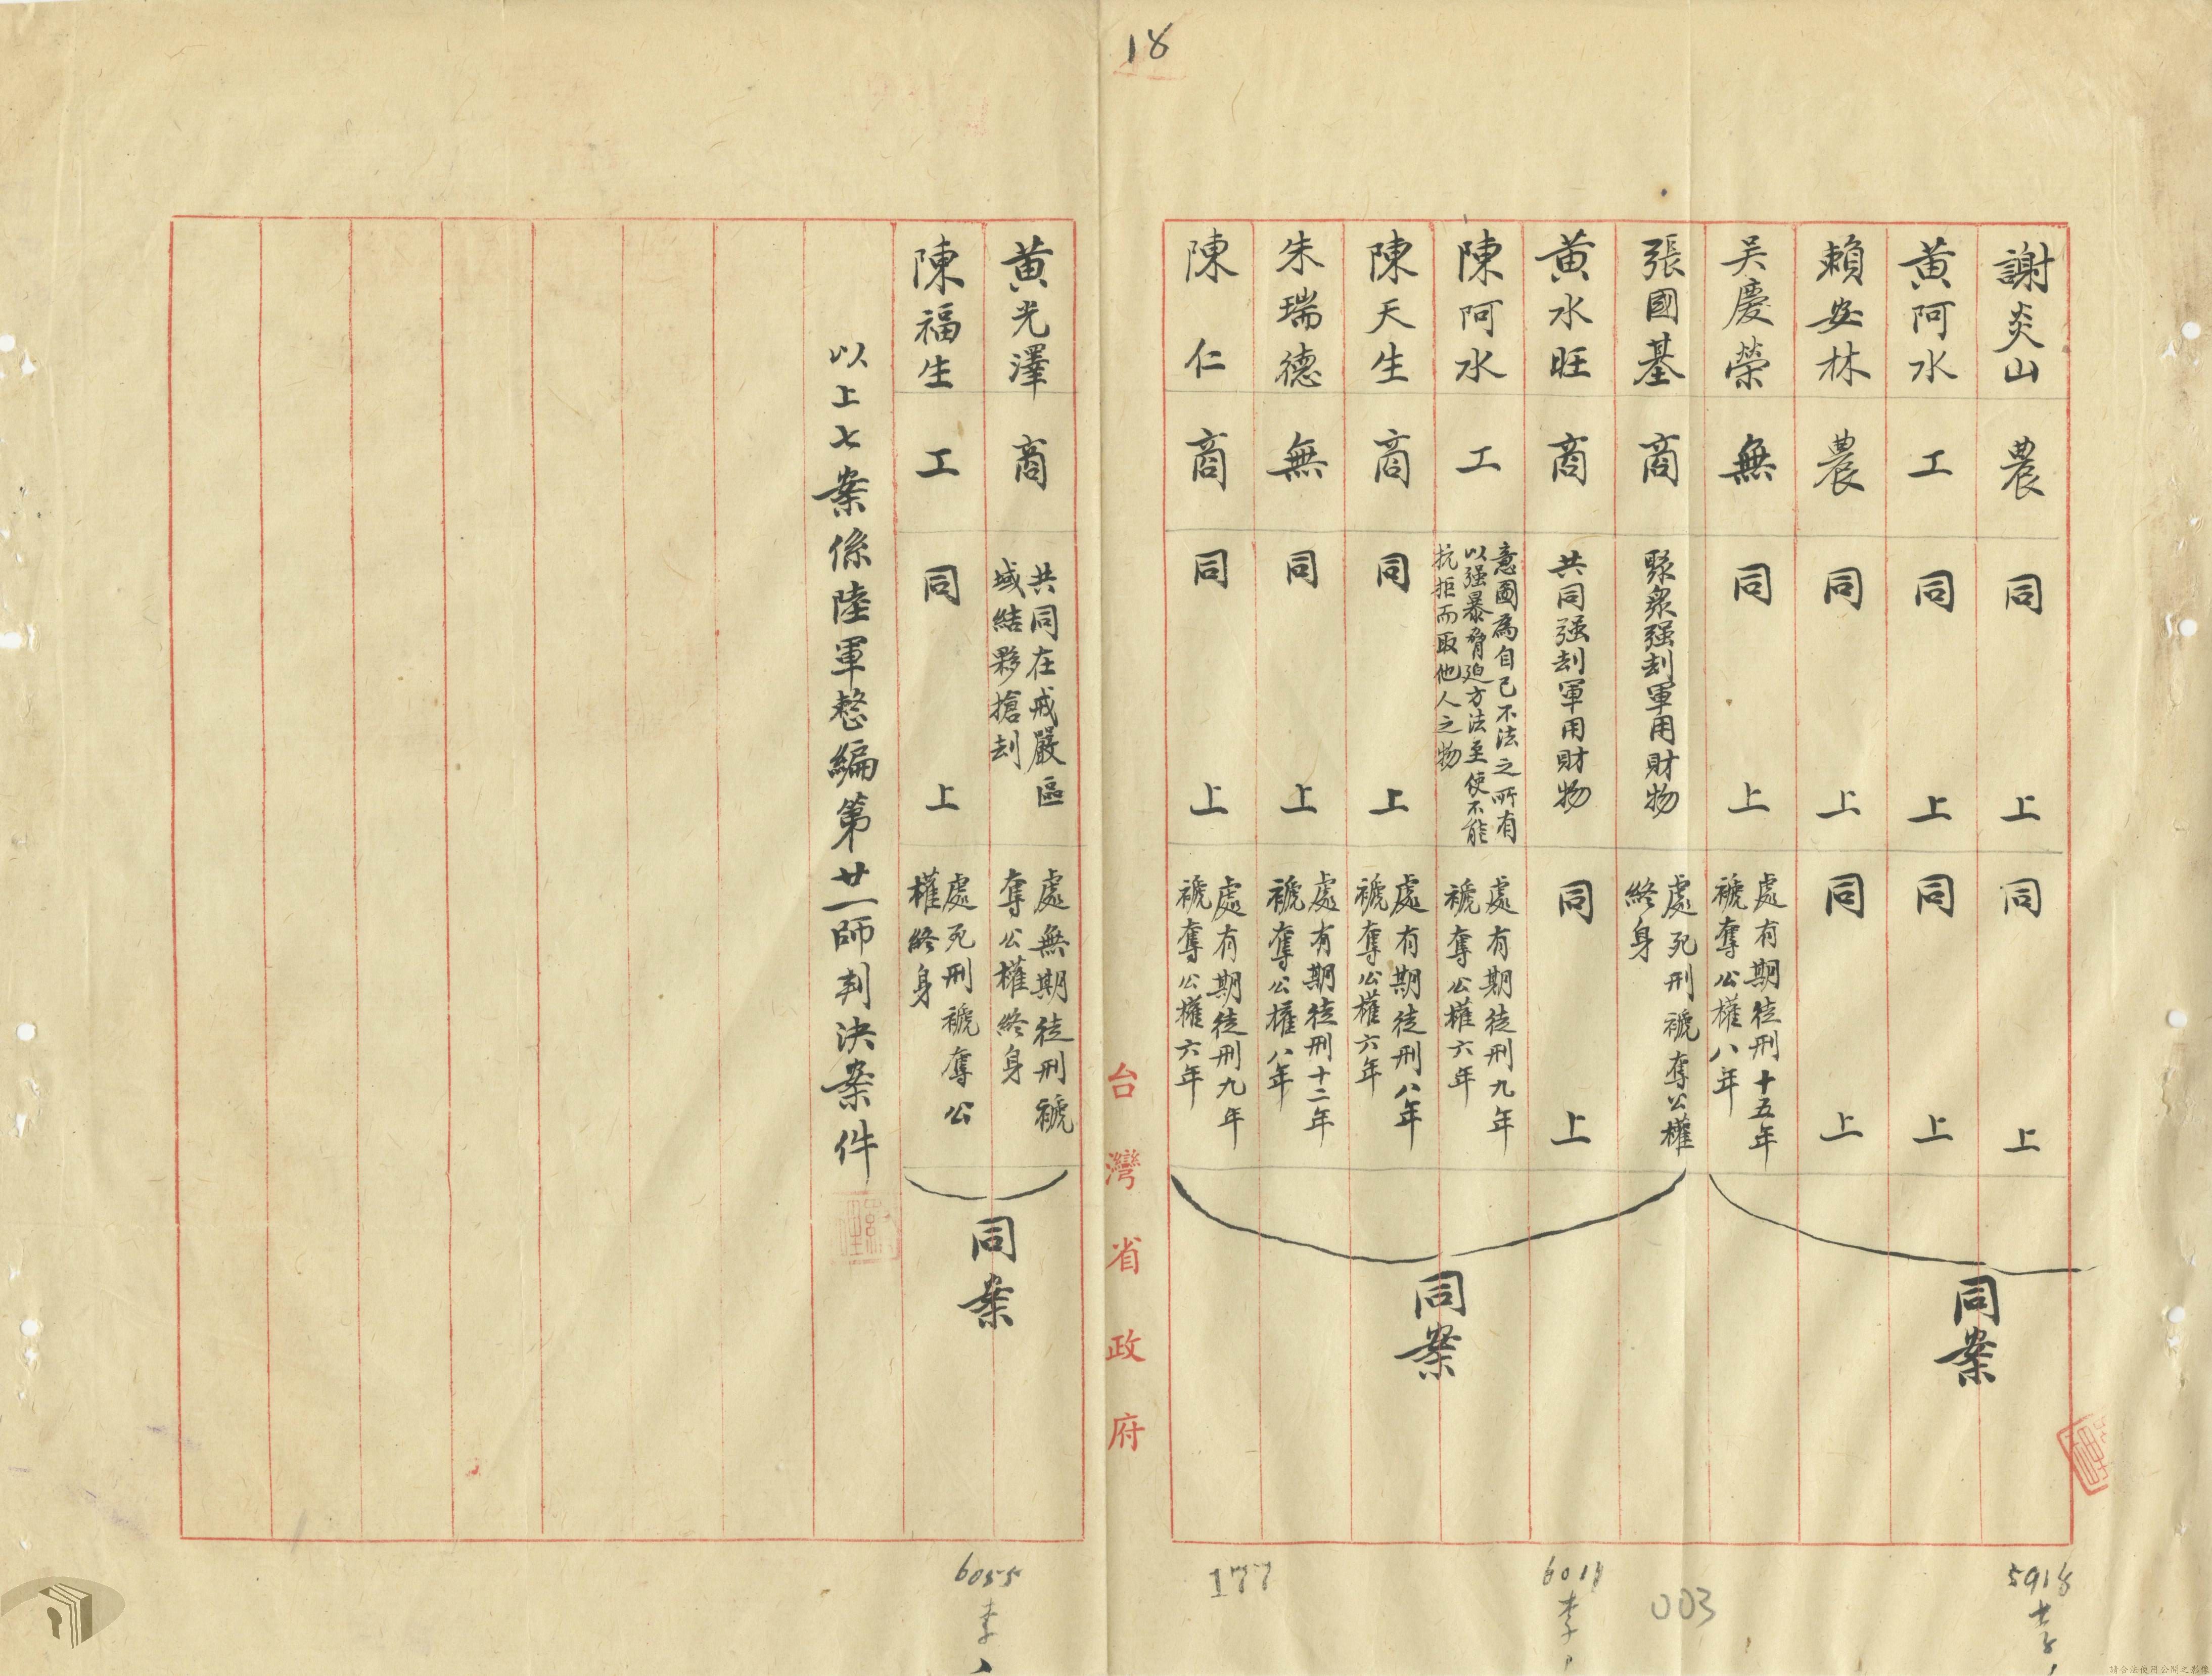 18
謝炎山 農 同上 同上
黃阿水 工 同上 同上
賴安林 農 同上 同上
吳慶榮 無 同上 處有期徒刑十五年
褫奪公權八年
同案
張國基 商 聚衆强刦軍用財物 處死刑褫奪公權
終身
黃水旺 商 共同强刦軍用財物 同上
陳阿水 工 意圖為自己不法之所有
以强暴脅迫方法至使不能
抗拒而取他人之物
處有期徒刑九年
褫奪公權六年
陳天生 商 同上 處有期徒刑八年
褫奪公權六年
朱瑞德 無 同上 處有期徒刑十二年
褫奪公權八年
陳仁 商 同上 處有期徒刑九年
褫奪公權六年
同案
台灣省政府
黃光澤 商 共同在戒嚴區
域結夥搶刦
處無期徒刑褫
奪公權終身
陳福生 工 同上 處死刑褫奪公
權終身
同案
以上七案係陸軍整編第廿一師判決案件
5918
003
6018
李
177
6055
李
請合法使用公開之影像